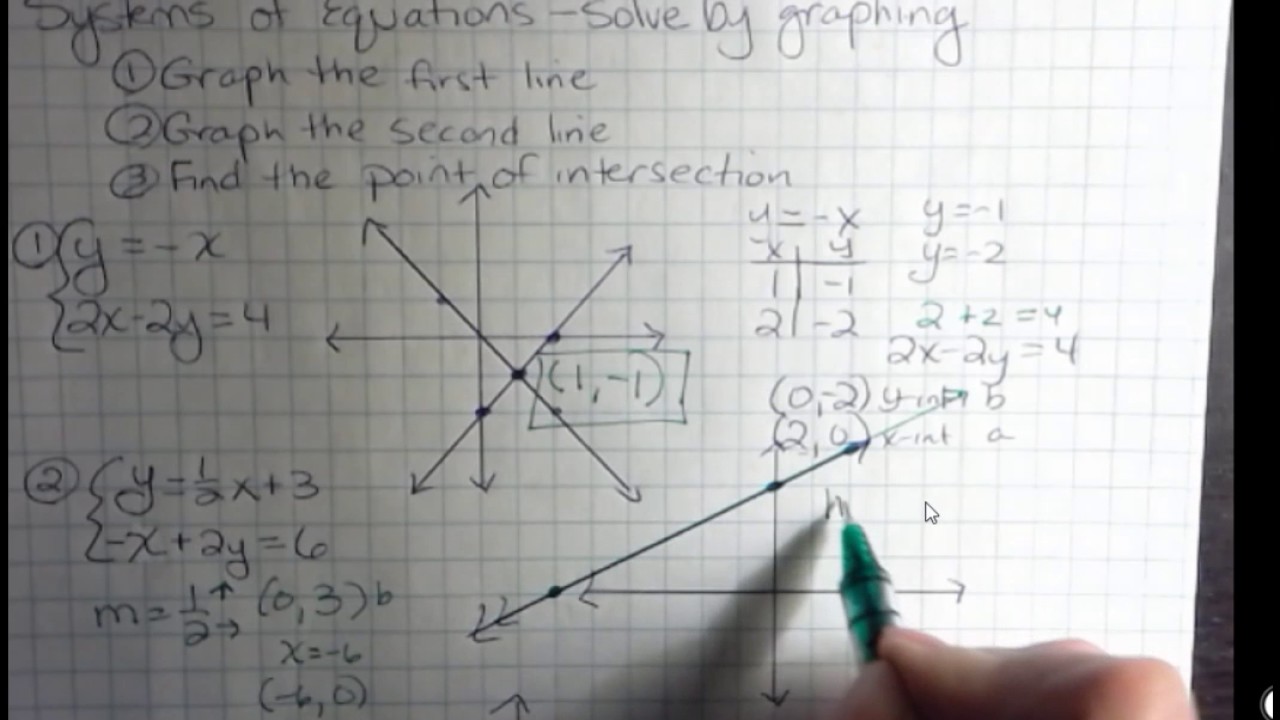 Systems of Equations - Solve by graphing
① Graph the first line
② Graph the second line
③ Find the point of intersection
① { y = -x
2x - 2y = 4
(1, -1)
y = -x
x | y
1 | -1
2 | -2
y = -1
y = -2
2 + 2 = 4
2x - 2y = 4
(0, -2) y-int b
(2, 0) x-int a
② { y = 1/2 x + 3
-x + 2y = 6
m = 1/2 ↑ → (0, 3) b
x = -6
(-6, 0)